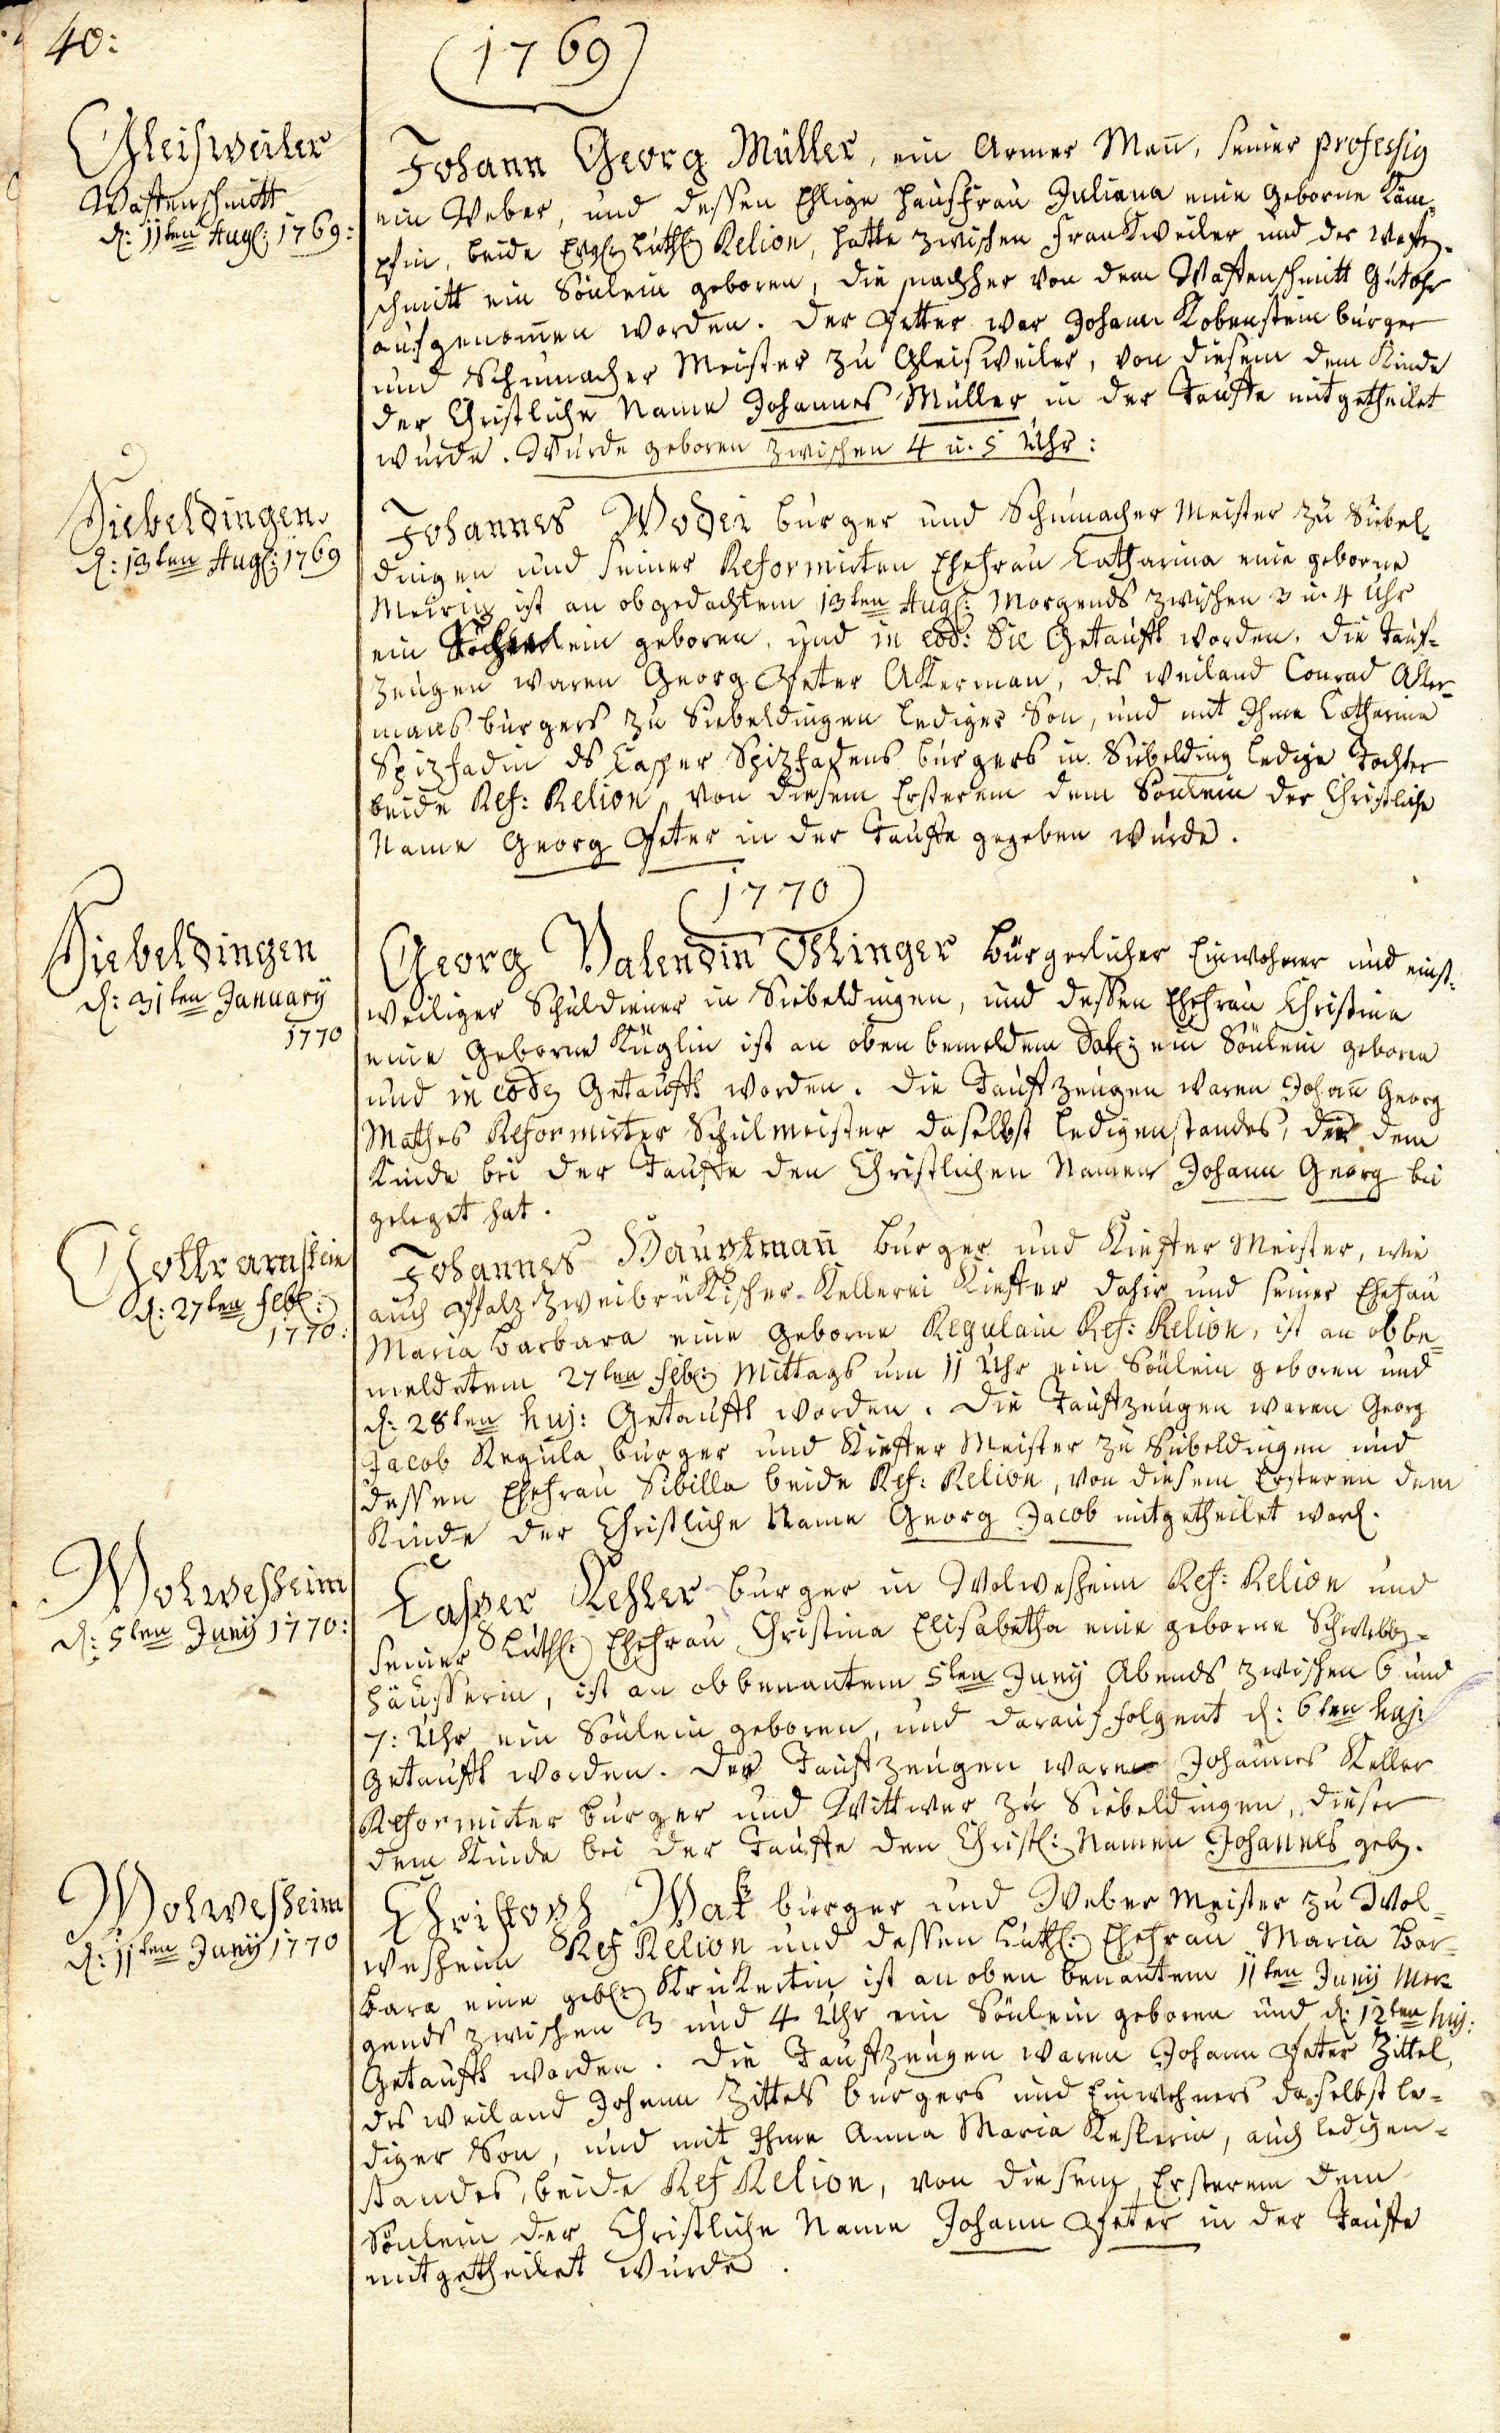 40:
1769
Gleisweiler
Waffenschmitt
d: 11ten Aug: 1769:
Johann Georg Müller, ein Armer Mañ, seiner professig
ein Weber, und dessen Ehlige Haußfrau Juliana eine geborne Käm-
pfin, beide Evgl: Luth: Relion, hatte zwischen Frankweiler und der Waffen-
schmitt ein Sönlein geboren, die nachher von dem Waffenschmitt
aufgenom̄en worden. Der Petter war Johann Kobenstein burger
und Schumacher Meister zu Gleisweiler, von diesem dem Kinde
der Christliche Name Johannes Müller in der Tauffe mitgetheilet
wurde. Wurde geboren zwischen 4 u. 5 Uhr:
Siebeldingen
d: 13ten Aug: 1769
Johannes Woder burger und Schumacher Meister zu Siebel-
dingen und seiner Reformirten Ehefrau Catharina eine geborne
Meirin ist an obgedachtem 13ten Aug: Morgends zwischen 3 u. 4 Uhr
ein geboren, und in eod: die Getaufft worden. Die Tauf-
zeugen waren Georg Peter AKerman, des weiland Conrad AKer-
mans burgers zu Siebeldingen lediger Son, und mit Ihme Catharina
Spizfadin ds Casper Spizfadens burgers in Siebelding ledige Tochter
beide Ref: Relion, von diesem Ersterem dem Sönlein der Christliche
Name Georg Peter in der Tauffe gegeben wurde.
1770
Siebeldingen
d: 31ten January
1770
Georg Valendin Öhlinger Bürgerlicher Einwohner und einst-
weiliger Schuldiener in Siebeldingen, und dessen Ehefrau Christina
eine Geborne Küglin ist an oben bemeldem Dat: ein Sönlein geboren
und in eod: Getaufft worden. Die Tauffzeugen waren Johañ Georg
Mathes Reformirter Schulmeister daselbst ledigenstandes, der dem
Kinde bei der Tauffe den Christlichen Namen Johann Georg bei
geleget hat.
Gottramstein
d: 27ten Feb:
1770:
Johannes Haustmañ burger und Kieffer Meister, wie
auch Pfalz ZweibrüKischer Kellerei Kieffer dahir und seiner Ehefau
Maria Barbara eine geborne Regulain Ref: Relion, ist an obbe-
meldetem 27ten Feb: Mittags um 11 Uhr ein Sönlein geboren und
d: 28ten huj: Getaufft worden. Die Tauffzeugen waren Georg
Jacob Regula burger und Kieffer Meister zu Siebeldingen und
dessen Ehefrau Sibilla beide Ref: Relion, von diesem Ersteren dem
Kinde der Christliche Name Georg Jacob mitgetheilet ward.
Wolwesheim
d: 5ten Juny 1770:
Casper Keßler burger in Wolwesheim Ref: Relion und
seiner Luth: Ehefrau Christina Elisabetha eine geborne Schwebb-
häusserin, ist an obbenantem 5ten Juny Abends zwischen 6 und
7: Uhr ein Sönlein geboren, und darauf folgent d: 6ten huj:
Getaufft worden. Der Tauffzeugen waren Johannes Keller
Reformirter burger und Wittwer zu Siebeldingen, dieser
dem Kinde bei der Tauffe den Christl: Namen Johannes geb.
Wolwesheim
d: 11ten Juny 1770
Christoph Wak burger und Weber Meister zu Wol-
wesheim Ref Relion und dessen Luth: Ehefrau Maria Bar-
bara eine geb: KruKertin ist an oben benantem 11ten Juny Mor-
gends zwischen 3 und 4 Uhr ein Sönlein geboren und d: 12ten huj:
Getaufft worden. Die Tauffzeugen waren Johann Peter Zittel,
des weiland Johann Zittels burgers und Einwohners daselbst le-
diger Son, und mit Ihme Anna Maria Keßlerin, auch ledigen-
standes, beide Ref Relion, von diesem Ersterem dem
Sönlein der Christliche Name Johann Peter in der Tauffe
mitgetheilet wurde.